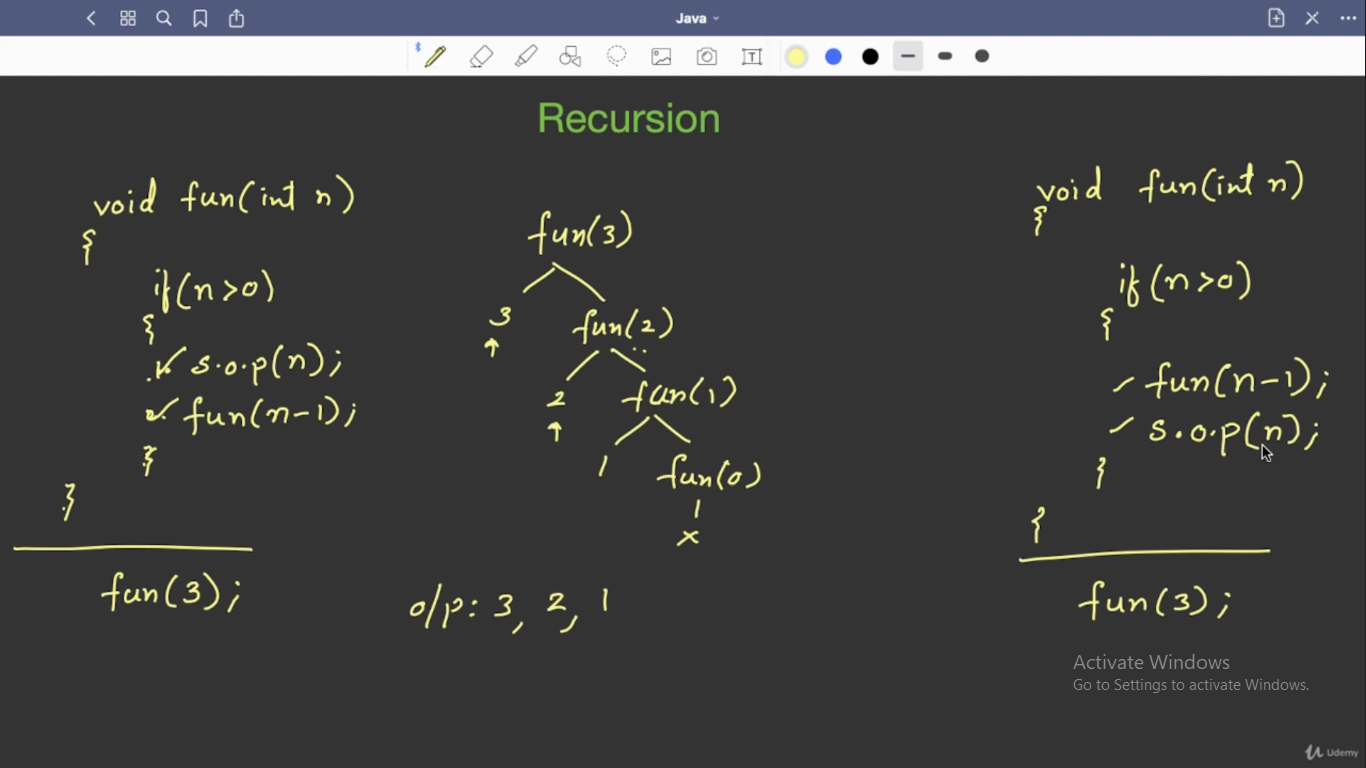 Java
T
Recursion
void fun(int n)
{
if(n>0)
{
s.o.p(n);
fun(n-1);
}
}
fun(3);
fun(3)
3 fun(2)
2 fun(1)
1 fun(0)
x
o/p: 3, 2, 1
void fun(int n)
{
if(n>0)
{
fun(n-1);
s.o.p(n);
}
{
fun(3);
Activate Windows
Go to Settings to activate Windows.
Udemy